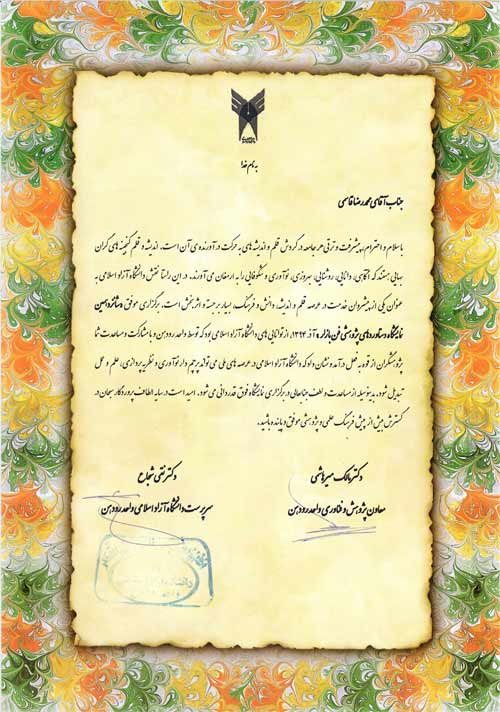 به نام خدا
جناب آقای محمدرضا قاسمی
با سلام و احترام، پیشرفت و ترقی هر جامعه در گردش قلم و اندیشه های به حرکت درآورنده ی آن است. اندیشه و قلم گنجینه های گران
بهایی هستند که آگاهی، دانایی، روشنایی، بهروزی، نوآوری و شکوفایی را به ارمغان می آورند. در این راستا نقش دانشگاه آزاد اسلامی به
عنوان یکی از پیشروان خدمت در عرصه قلم و اندیشه، دانش و فرهنگ، بسیار برجسته و اثربخش است. برگزاری موفق
نمایشگاه دستاوردهای پژوهشی فن بازار آذر ۱۳۹۴، از توانایی های دانشگاه آزاد اسلامی بود که توسط واحد رودهن و با مشارکت و مساعدت شما
پژوهشگران از قوه به فعل درآمد و نشان داد که دانشگاه آزاد اسلامی در عرصه های ملی می تواند پرچم دار نوآوری و نظریه پردازی، علم و عمل
تبدیل شود. بدینوسیله از مساعدت و لطف جنابعالی در برگزاری نمایشگاه فوق قدردانی می شود. امید است در سایه الطاف پروردگار سبحان در
گسترش بیش از پیش فرهنگ علمی و پژوهشی موفق و پاینده باشید.
دکتر مالک میرهاشمی
معاون پژوهش و فناوری واحد رودهن
دکتر تقی شجاع
سرپرست دانشگاه آزاد اسلامی واحد رودهن